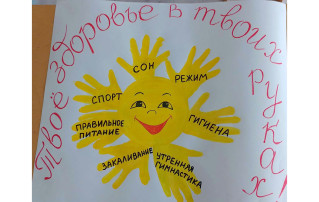 Твоё здоровье в твоих
руках!
СОН
РЕЖИМ
СПОРТ
ГИГИЕНА
ПРАВИЛЬНОЕ
ПИТАНИЕ
ЗАКАЛИВАНИЕ
УТРЕННАЯ
ГИМНАСТИКА